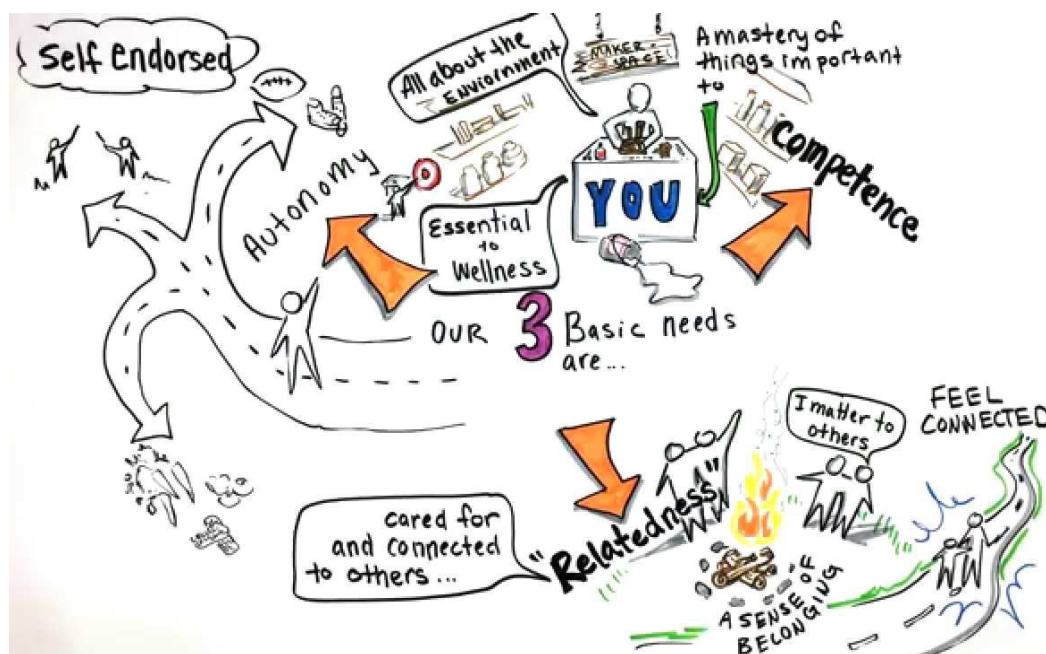 Self Endorsed
All about the
Enviornment
MAKER
SPACE
A mastery of
things important
to
YOU
Competence
Autonomy
Essential
to
Wellness
OUR 3 Basic needs
are...
Relatedness
"Relatedness"
cared for
and connected
to others...
I matter to
others
FEEL
CONNECTED
A SENSE OF
BELONGING